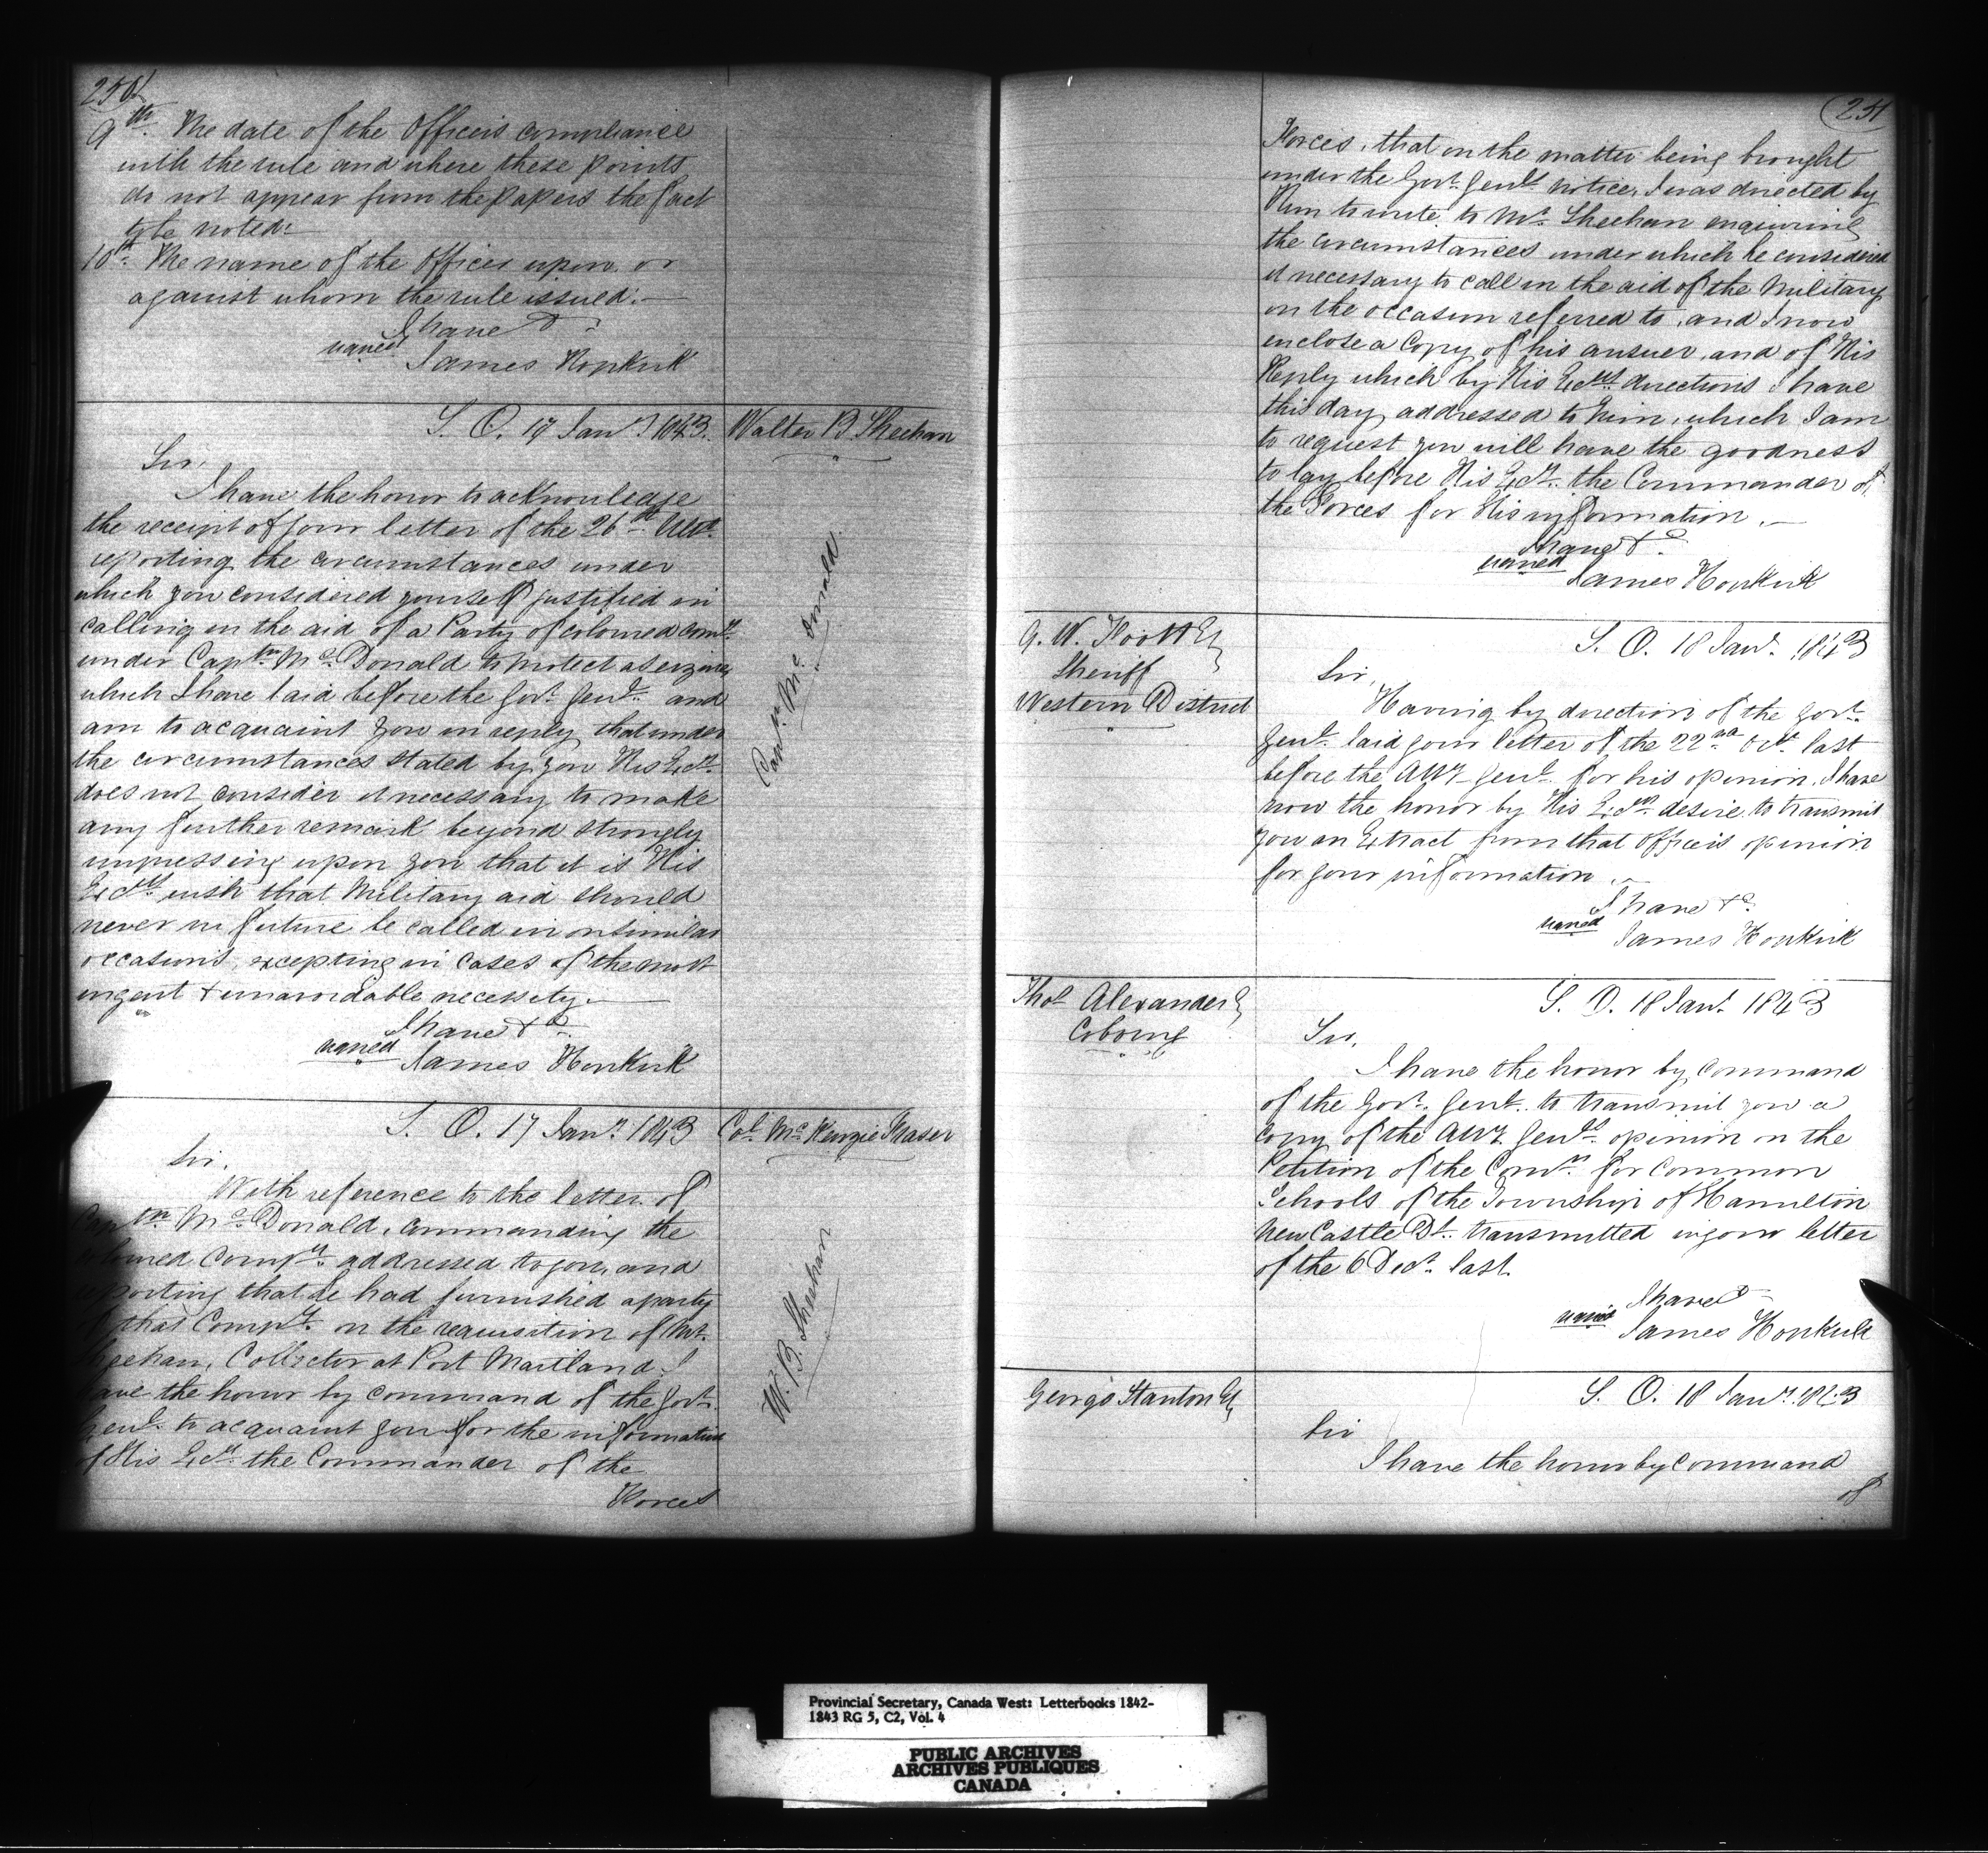 250
9th. The date of the Officers compliance
with the rule and where these points
do not appear from the papers the fact
to be noted.
10th. The name of the Officer upon or
against whom the rule issued.
I have &c.
signed James Hopkirk
S. O. 17 Jany. 1843.
Walter B Sheehan
Sir,
I have the honor to acknowledge
the receipt of your letter of the 26th Ulto.
reporting the circumstances under
which you considered yourself justified in
calling in the aid of a Party of colored Compy.
under Captn. McDonald to protect a seizure
which I have laid before the Govr. Genl. and
am to acquaint you in reply that under
the circumstances stated by you His Excy.
does not consider it necessary to make
any further remark beyond strongly
impressing upon you that it is His
Excys. wish that Military aid should
never in future be called in on similar
occasions, excepting in cases of the most
urgent & unavoidable necessity.
I have &c.
signed James Hopkirk
Captn. Mc.Donald.
S. O. 17 Jany. 1843
Col. McKenzie Fraser
Sir,
With reference to the letter of
Captn McDonald, commanding the
colored Compy. addressed to you, and
reporting that he had furnished a party
of that Compy. on the requisition of Mr.
Sheehan, Collector at Port Maitland, I
have the honor by command of the Govr.
Genl. to acquaint you for the information
of His Excy. the Commander of the
Forces
W. B. Sheehan
251
Forces, that on the matter being brought
under the Govr. Genls. notice, I was directed by
Him to write to Mr. Sheehan enquiring
the circumstances under which he considered
it necessary to call in the aid of the Military
on the occasion referred to, and I now
enclose a Copy of his answer, and of His
Reply which by His Excys. directions I have
this day addressed to him, which I am
to request you will have the goodness
to lay before His Excy. the Commander of
the Forces for His information.
I have &c.
signed James Hopkirk
G. W. Foott Eq
Sheriff
Western District
S. O. 18 Jany. 1843
Sir,
Having by direction of the Govr.
Genl. laid your letter of the 22nd Octr. last
before the Atty Genl. for his opinion, I have
now the honor by His Excys. desire to transmit
you an Extract from that Officers opinion
for your information.
I have &c.
signed James Hopkirk
Thos Alexander E
Cobourg
S. O. 18 Jany. 1843
Sir,
I have the honor by Command
of the Govr. Genl. to transmit you a
copy of the Atty. Genls. opinion on the
Petition of the Comrs. for Common
Schools of the Township of Hamilton
NewCastle Dt. transmitted in your letter
of the 6 Decr. last.
I have &c
signed James Hopkirk
George Stanton Eq
S. O. 18 Jany. 1843
Sir
I have the honor by Command
of
Provincial Secretary, Canada West: Letterbooks 1842-
1843 RG 5, C2, Vol. 4
PUBLIC ARCHIVES
ARCHIVES PUBLIQUES
CANADA